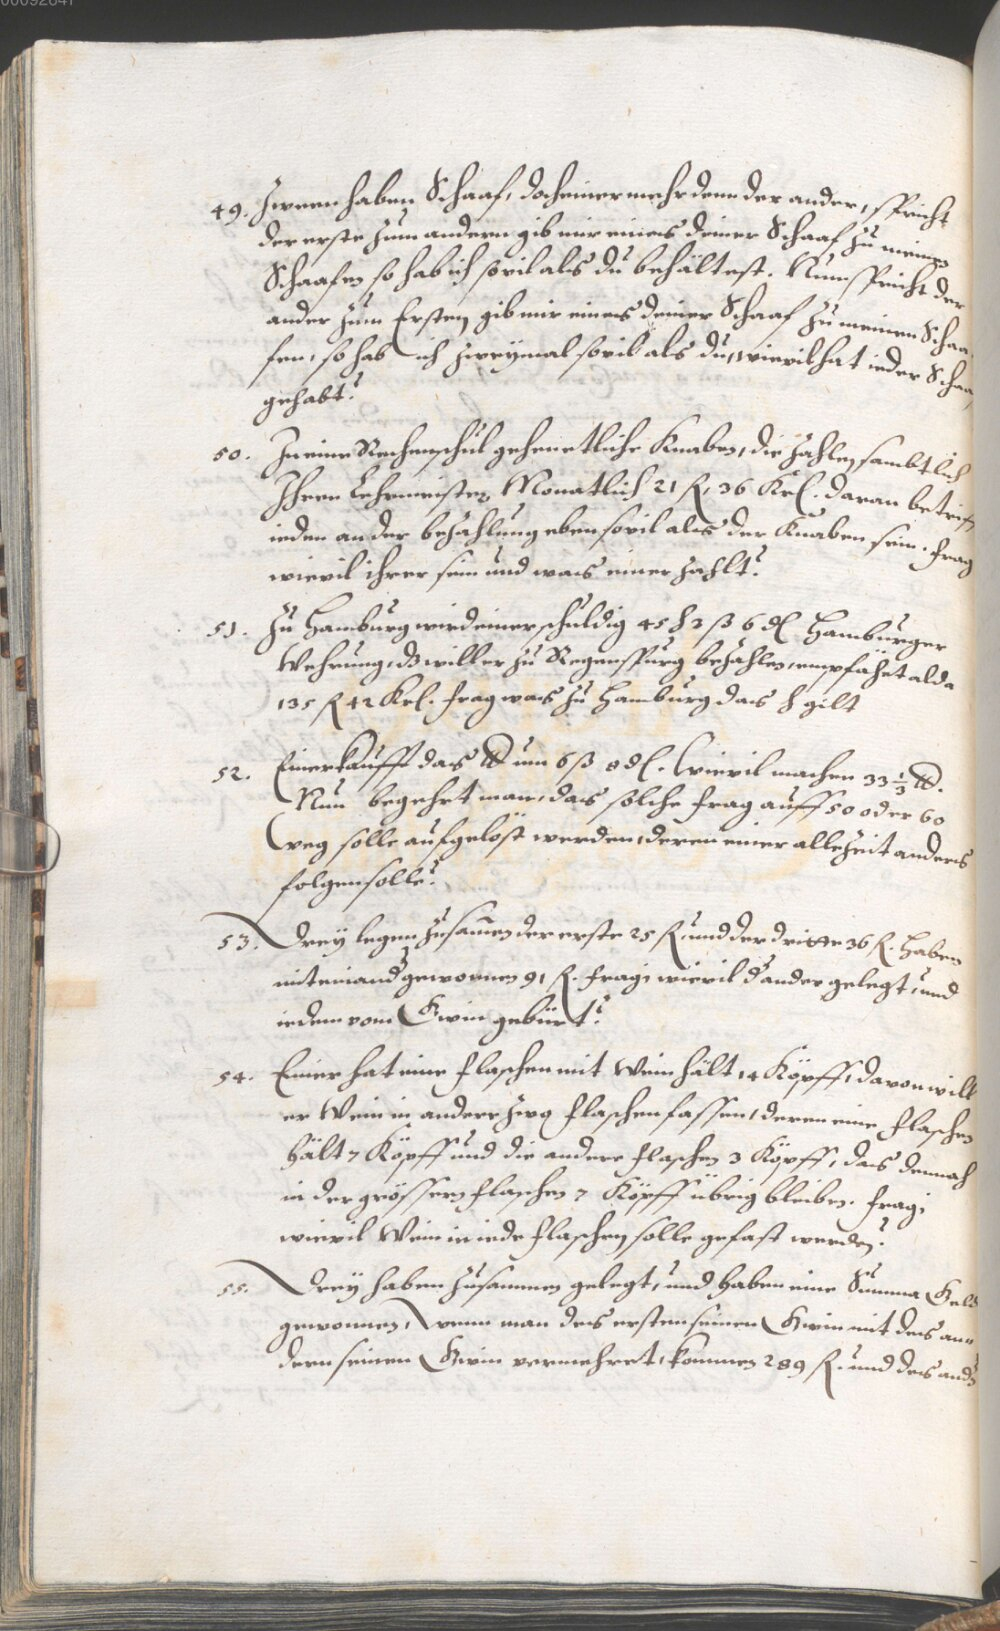 00092841
49. Zween haben Schaaf, doch einer mehr denn der ander, spricht
der erste zum andern gib mir eines deiner Schaaf zu meinen
Schaafen so hab ich sovil als du behältest. Nun spricht der
ander zum Ersten gib mir eines deiner Schaaf zu meinen Schaa,
fen, so hab ich zweymal sovil als du, wievil hat ieder Schaa,
gehabt?
50. In eine Rechenschul gehen etliche Knaben, die zahlen sambtlich
Ihren Lehrmeister Monatlich 21 fl, 36 Krl. daran betrifft
ieden an der bezahlung eben sovil als der Knaben sein. frag
wievil ihrer sein und was einer zahlt?
51. Zu Hamburg wird einer schuldig 45 ₰ 2 ß 6 dl Hamburger
Wehrung, dz will er zu Regenspurg bezahlen, empfähet alda
135 fl 42 Krl. frag was zu Hamburg das ₰ gilt
52. Einer kaufft das ℔ um 6 ß 8 dl. wievil machen 33 1/3 ℔.
Nun begehrt man, das solche frag auff 50 oder 60
weg solle aufgelöst werden, deren einer allezeit anders
folgen solle?
53. Drey legen zusamen der erste 25 fl und der dritte 36 fl. haben
miteinand gewonnen 91 fl. frag, wievil d ander gelegt, und
iedem vom Gwin gebürt?
54. Einer hat eine flaschen mit Wein hält 14 Köpff, davon will
er Wein in andere zwo flaschen fassen, deren eine flaschen
hält 7 Köpff und die andere flaschen 3 Köpff, das dennoch
in der grössern flaschen 7 Köpff übrig bleiben. frag,
wievil Wein in iede flaschen solle gefast werden?
55. Drey haben zusammen gelegt, und haben eine Summa Geld
gewonnen, wenn man des ersten seinen Gwin mit des an„
dern seinen Gwin vermehret, kommen 289 fl. und des and